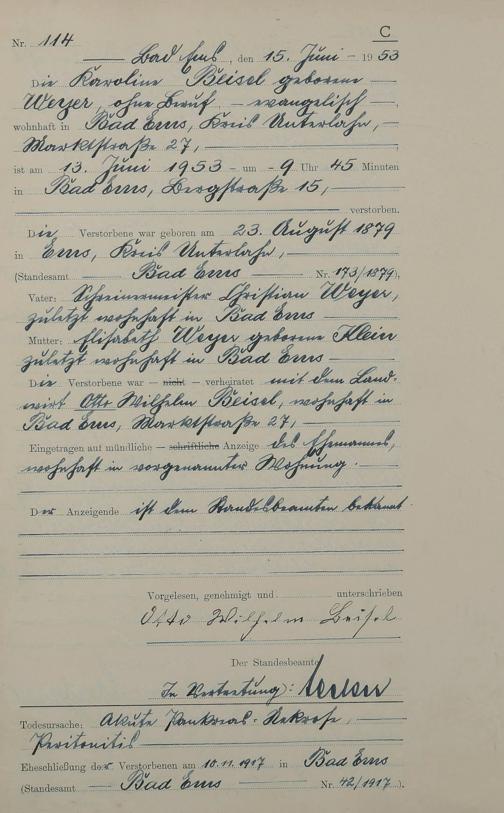 C
Nr. 114
Bad Ems, den 15. Juni 1953
Die Karoline Beisel geborene
Weyer, ohne Beruf, — evangelisch —,
wohnhaft in Bad Ems, Kreis Unterlahn, —
Marktstraße 27, —
ist am 13. Juni 1953 — um — 9 Uhr 45 Minuten
in Bad Ems, Bergstraße 15, —
verstorben.
Die Verstorbene war geboren am 23. August 1879
in Ems, Kreis Unterlahn, —
(Standesamt — Bad Ems — Nr. 173/1879),
Vater: Schreinermeister Christian Weyer,
zuletzt wohnhaft in Bad Ems —
Mutter: Elisabeth Weyer geborene Klein
zuletzt wohnhaft in Bad Ems —
Die Verstorbene war — nicht — verheiratet mit dem Land-
wirt Otto Wilhelm Beisel, wohnhaft in
Bad Ems, Marktstraße 27, —
Eingetragen auf mündliche — schriftliche Anzeige des Ehemannes,
wohnhaft in vorgenannter Wohnung. —
Der Anzeigende ist dem Standesbeamten bekannt.
Vorgelesen, genehmigt und unterschrieben
Otto Wilhelm Beisel
Der Standesbeamte
In Vertretung:
Todesursache: Akute Pankreas-Nekrose, —
Peritonitis —
Eheschließung der Verstorbenen am 10.11.1917 in Bad Ems
(Standesamt — Bad Ems — Nr. 42/1917).